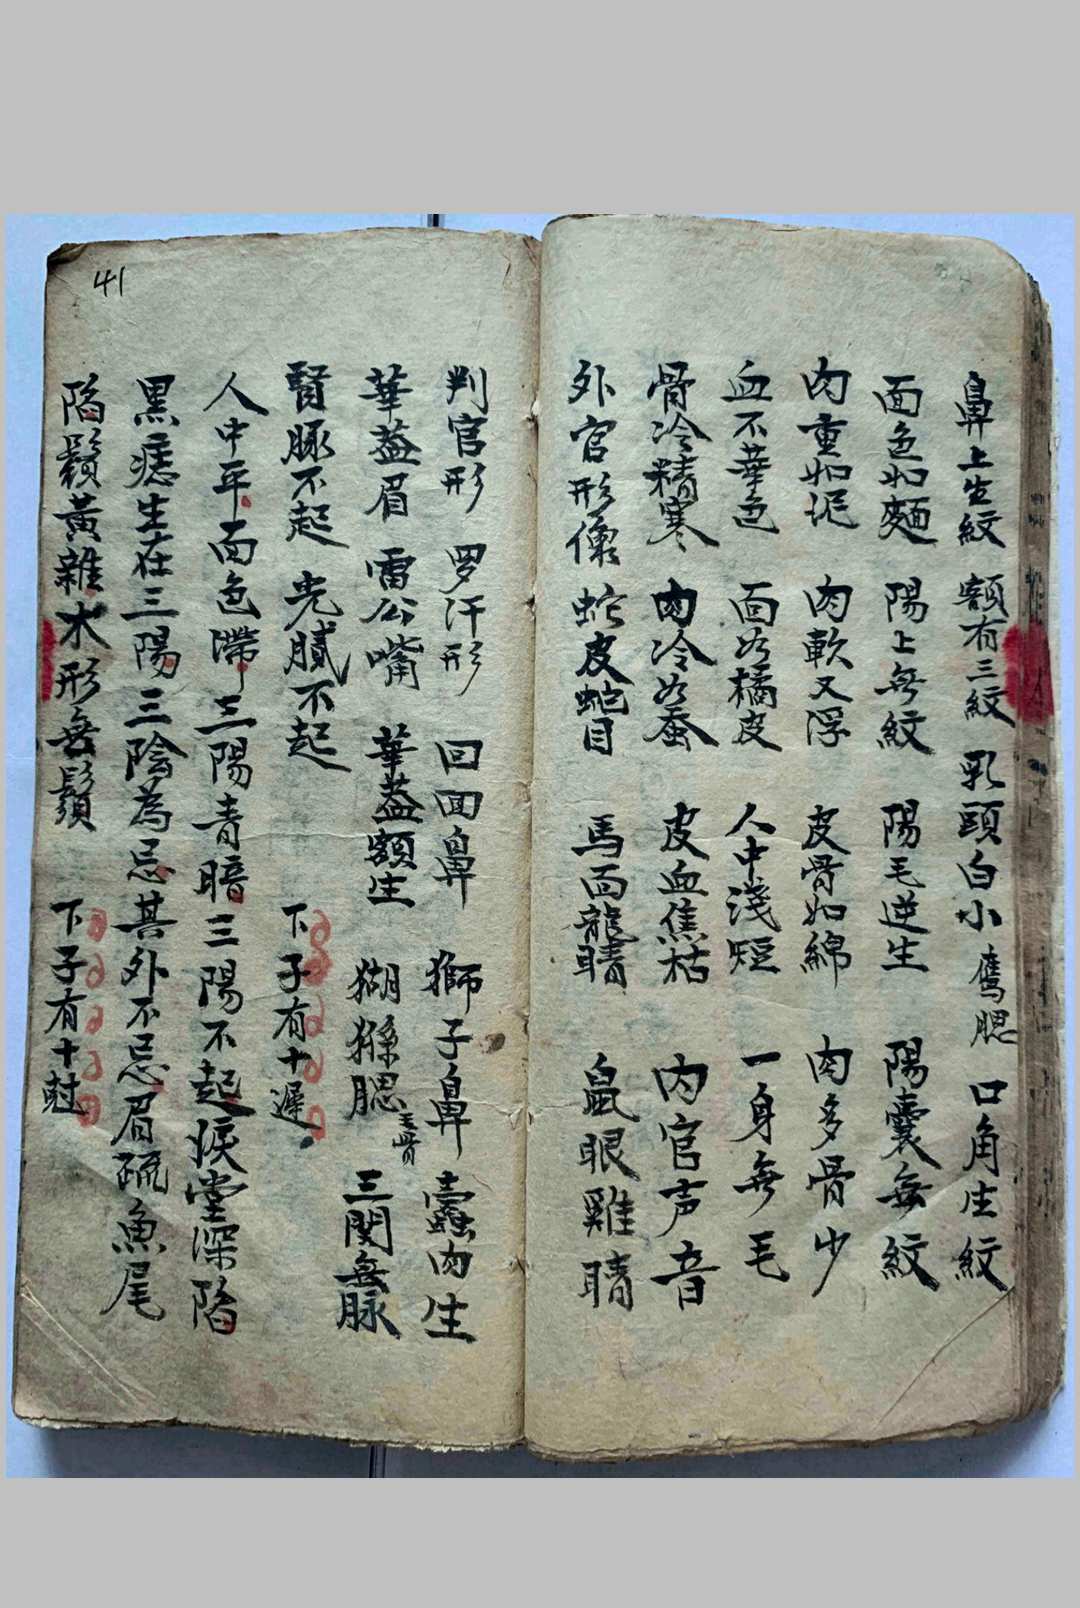 鼻上生紋 額有三紋 乳頭白小 鷹腮 口角生紋
面色如麵 陽上無紋 陽毛逆生 陽囊無紋
肉重如泥 肉軟又浮 皮骨如綿 肉多骨少
血不華色 面如橘皮 人中淺短 一身無毛
骨冷精寒 肉冷如蚕 皮血焦枯 内官声音
外官形像 蛇皮蛇目 馬面龍睛 鼠眼雞睛
判官形 罗汗形 回面鼻 獅子鼻 蠹肉生
華盖眉 雷公嘴 華盖額生 猢猻腮 三関無脉
腎脉不起 光膩不起 下子有十遲
人中平面色滯三陽青暗三陽不起淚堂深陷
黑痣生在三陽三陰為忌其外不忌眉疏魚尾
陷鬚黃雜木形無鬚 下子有十尅
41